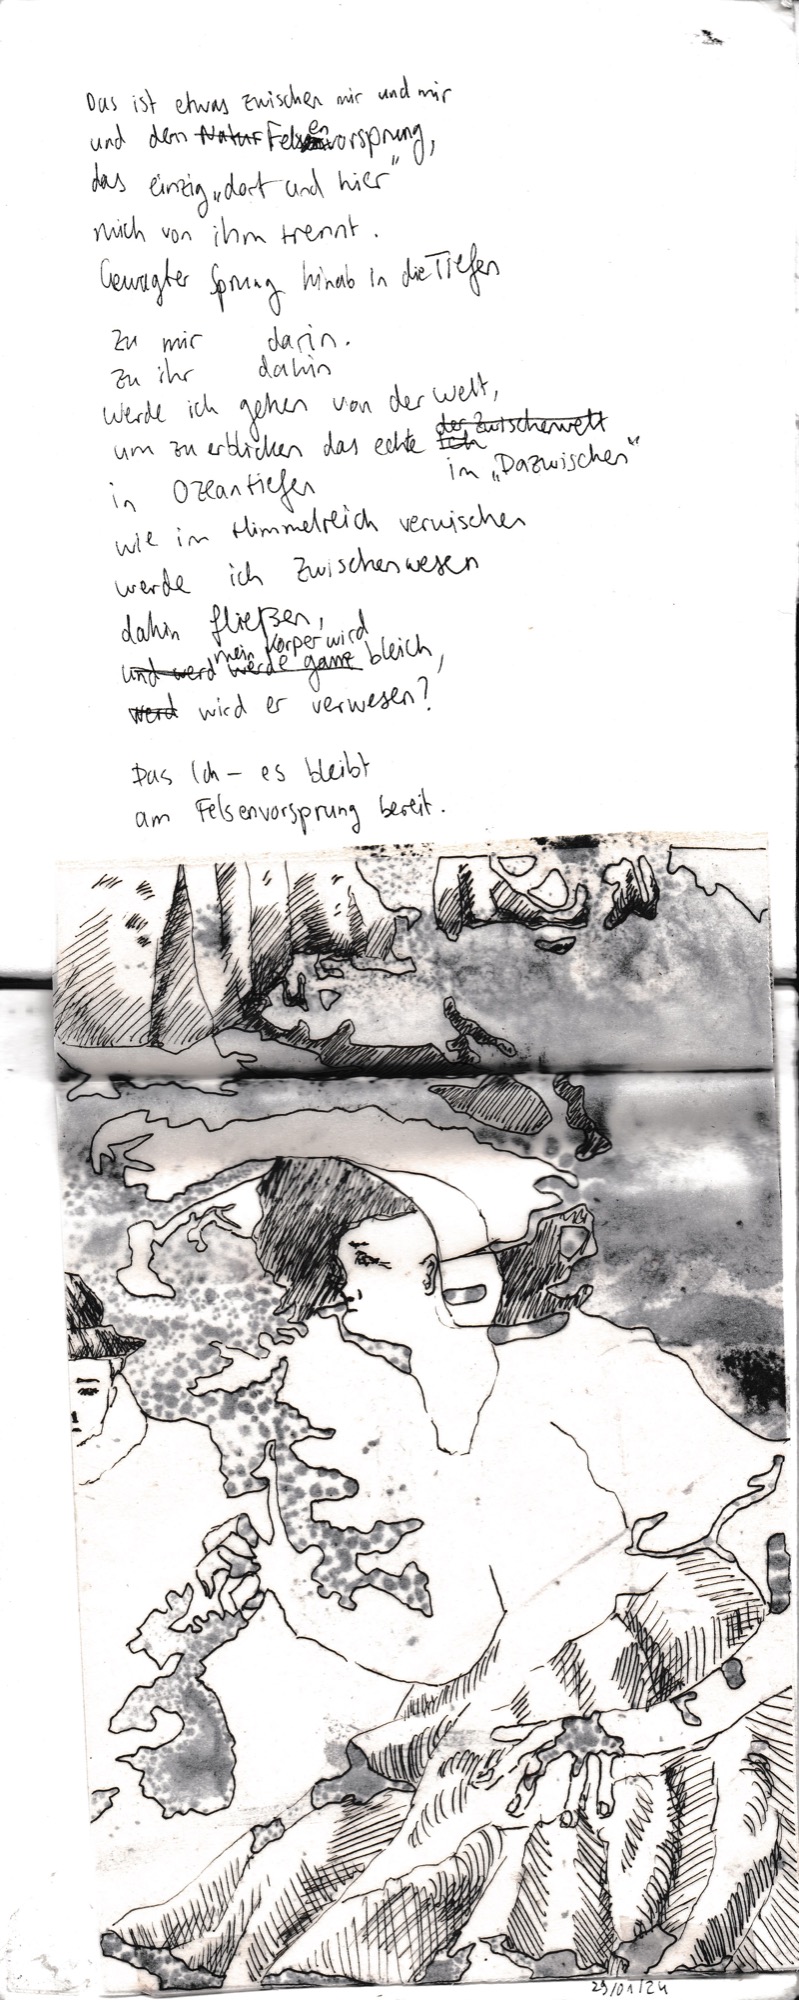 Das ist etwas zwischen mir und mir
und dem Natur Felsenvorsprung,
das einzig „dort und hier"
mich von ihm trennt.
Gewagter Sprung hinab in die Tiefen
zu mir darin.
zu ihr dahin
werde ich gehen von der Welt,
um zu erblicken das echte Ich der Zwischenwelt
im „Dazwischen"
in Ozeantiefen
wie im Himmelreich verwischen
werde ich Zwischenwesen
dahin fließen,
mein Körper wird
und werd werde ganz bleich,
werd wird er verwesen?
Das Ich – es bleibt
am Felsenvorsprung bereit.
29/01/24